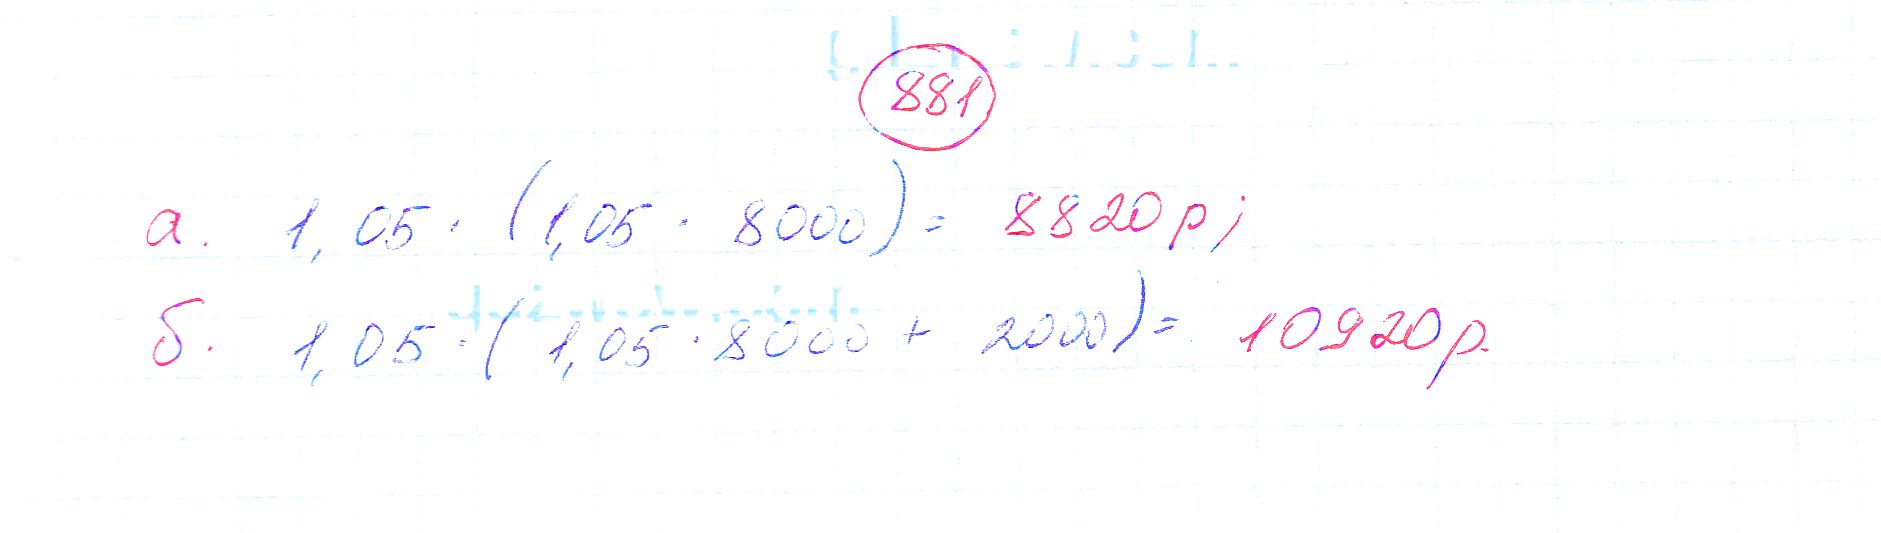 881
а. 1,05 · (1,05 · 8000) = 8820р;
б. 1,05 · (1,05 · 8000 + 2000) = 10920р.